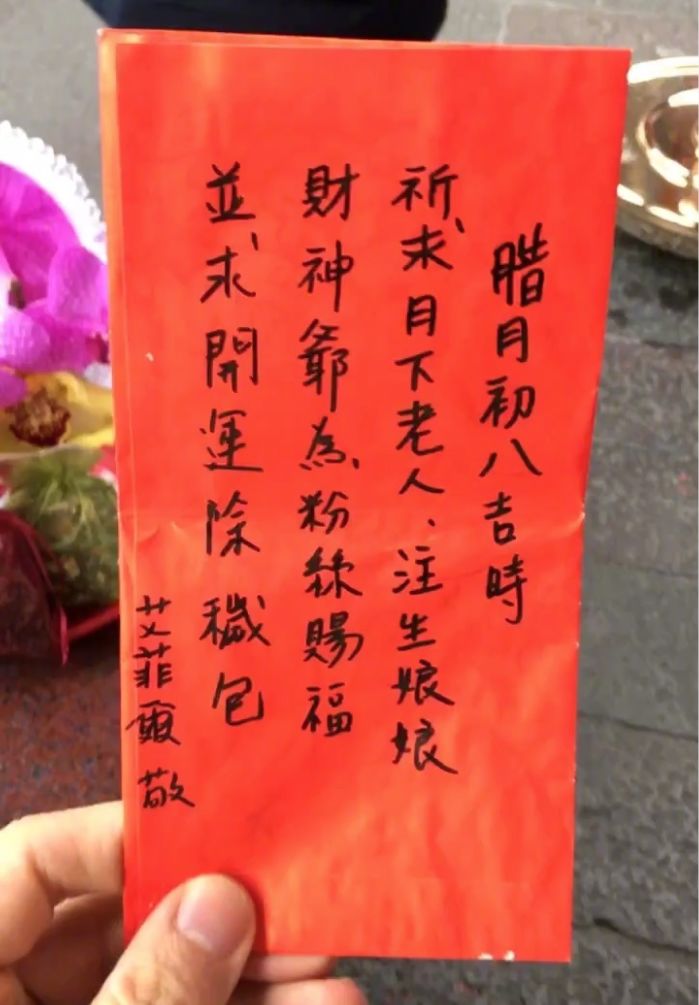 腊月初八吉時
祈求月下老人、注生娘娘
財神爺為粉絲賜福
並求開運除穢包
艾菲爾敬